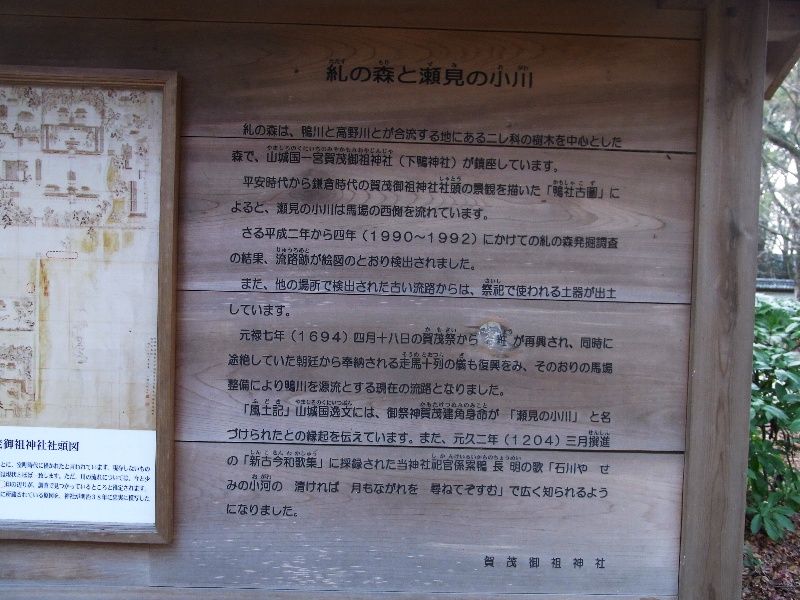 糺の森と瀬見の小川
糺の森は、鴨川と高野川とが合流する地にあるニレ科の樹木を中心とした
森で、山城国一宮賀茂御祖神社（下鴨神社）が鎮座しています。
平安時代から鎌倉時代の賀茂御祖神社社頭の景観を描いた「鴨社古圖」に
よると、瀬見の小川は馬場の西側を流れています。
さる平成二年から四年（1990～1992）にかけての糺の森発掘調査
の結果、流路跡が絵図のとおり検出されました。
また、他の場所で検出された古い流路からは、祭祀で使われる土器が出土
しています。
元禄七年（1694）四月十八日の賀茂祭から が再興され、同時に
途絶していた朝廷から奉納される走馬十列の儀も復興をみ、そのおりの馬場
整備により鴨川を源流とする現在の流路となりました。
「風土記」山城国逸文には、御祭神賀茂建角身命が 「瀬見の小川」 と名
づけられたとの縁起を伝えています。また、元久二年（1204）三月撰進
の「新古今和歌集」に採録された当神社祀官係案鴨 長 明の歌「石川や せ
みの小河の 清ければ 月もながれを 尋ねてぞすむ」で広く知られるよう
になりました。
賀茂御祖神社
御祖神社社頭図